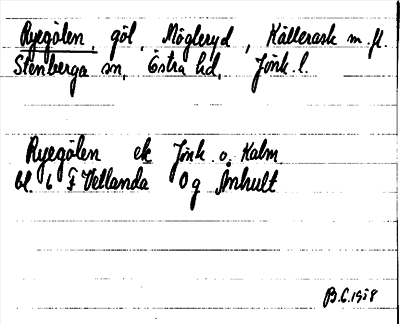 Ryegölen, göl, Mögleryd, Källerask m.fl.
Stenberga sn, Östra hd, Jönk. l.
Ryegölen ek Jönk. o. Kalm.
bl. 6 F Vetlanda Og Åmhult
B.C. 1958